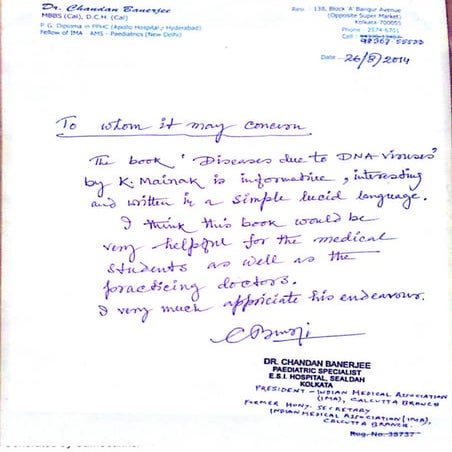 Dr. Chandan Banerjee
MBBS (Cal), D.C.H (Cal)
P. G. Diploma in PPHC (Apollo Hospital, Hyderabad)
Fellow of IMA - AMS - Paediatrics (New Delhi)
Resi : 138, Block 'A' Bangur Avenue
(Opposite Super Market)
Kolkata 700055
Phone : 2574-6701
Cell : 98367 55533
Date 26/8/2014
To whom it may concern
The book 'Diseases due to DNA viruses'
by K. Mainak is informative, interesting
and written in a simple lucid language.
I think this book would be
very helpful for the medical
students as well as the
practicing doctors.
I very much appriciate his endeavour.
DR. CHANDAN BANERJEE
PAEDIATRIC SPECIALIST
E.S.I. HOSPITAL, SEALDAH
KOLKATA
PRESIDENT - INDIAN MEDICAL ASSOCIATION
(IMA), CALCUTTA BRANCH
FORMER HONY. SECRETARY
INDIAN MEDICAL ASSOCIATION (IMA),
CALCUTTA BRANCH.
Reg. No. 38737